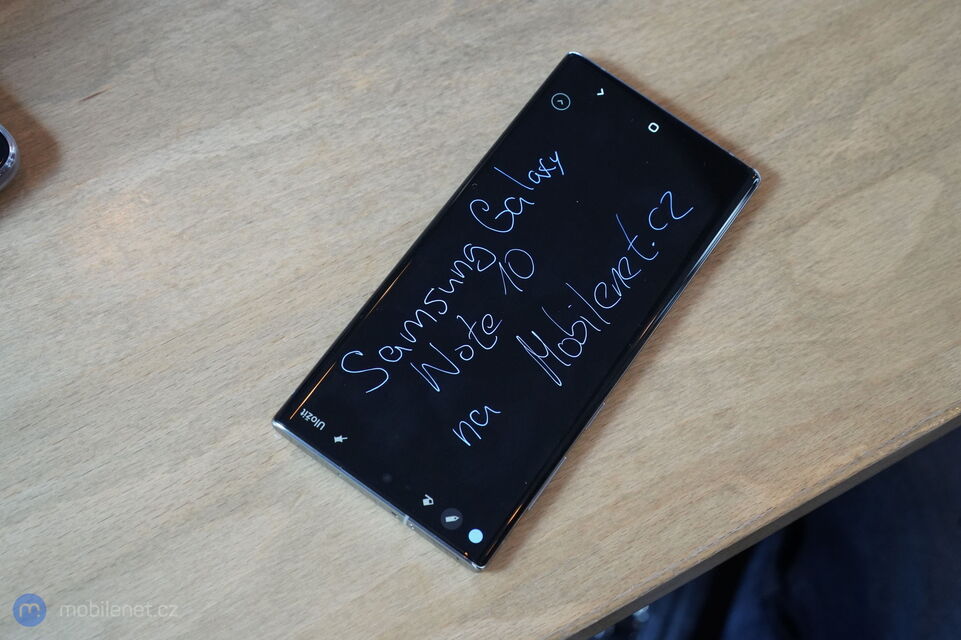 Samsung Galaxy
Note 10
na Mobilenet.cz
Uložit
mobilenet.cz